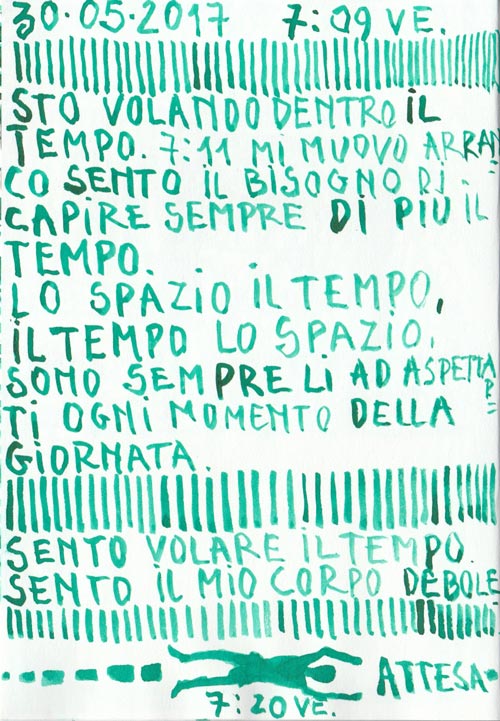 30.05.2017 7:09 VE.
STO VOLANDO DENTRO IL
TEMPO. 7:11 MI MUOVO ARRAN
CO SENTO IL BISOGNO DI
CAPIRE SEMPRE DI PIU IL
TEMPO.
LO SPAZIO IL TEMPO,
IL TEMPO LO SPAZIO.
SONO SEMPRE LI AD ASPETTAR=
TI OGNI MOMENTO DELLA
GIORNATA.
SENTO VOLARE IL TEMPO.
SENTO IL MIO CORPO DEBOLE
ATTESA
7:20 VE.